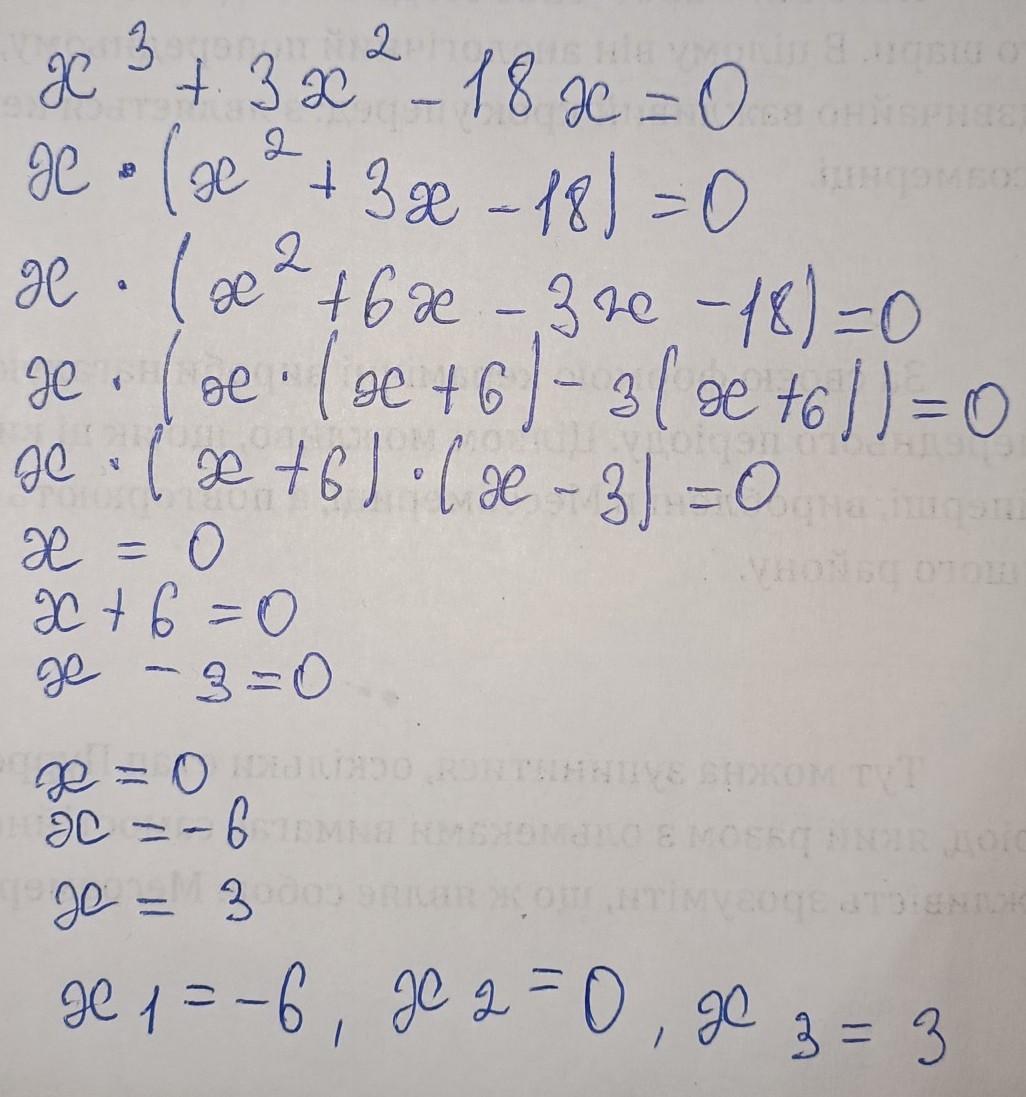 x³ + 3x² - 18x = 0
x · (x² + 3x - 18) = 0
x · (x² + 6x - 3x - 18) = 0
x · (x · (x + 6) - 3(x + 6)) = 0
x · (x + 6) · (x - 3) = 0
x = 0
x + 6 = 0
x - 3 = 0
x = 0
x = -6
x = 3
x₁ = -6, x₂ = 0, x₃ = 3